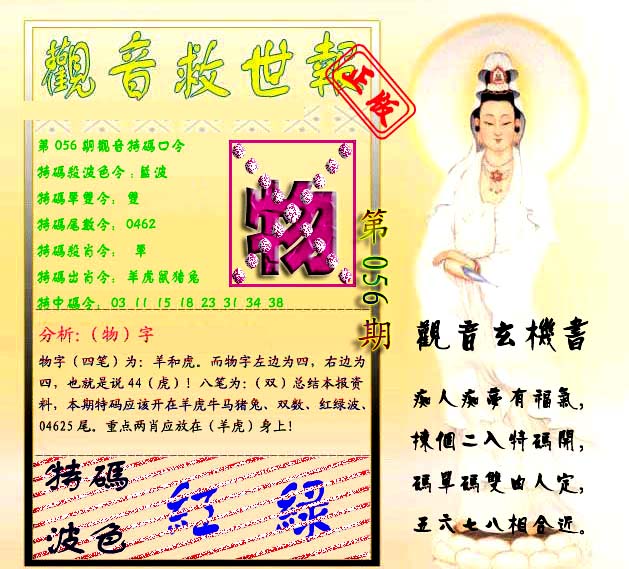 觀音救世報
正彩
第 056 期觀音特碼口令
特碼殺波色令：藍波
特碼單雙令： 雙
特碼尾數令： 0462
特碼殺肖令： 單
特碼出肖令： 羊虎鼠猪兔
特中碼令： 03 11 15 18 23 31 34 38
物
第 056 期
分析:（物）字
物字（四笔）为：羊和虎。而物字左边为四，右边为
四，也就是说 44（虎）！八笔为：（双）总结本报资
料，本期特码应该开在羊虎牛马猪兔、双数、红绿波、
04625 尾。重点两肖应放在（羊虎）身上！
特碼
波色
紅 綠
觀音玄機書
痴人痴夢有福氣，
揀個二入特碼開，
碼單碼雙由人定，
五六七八相合近。